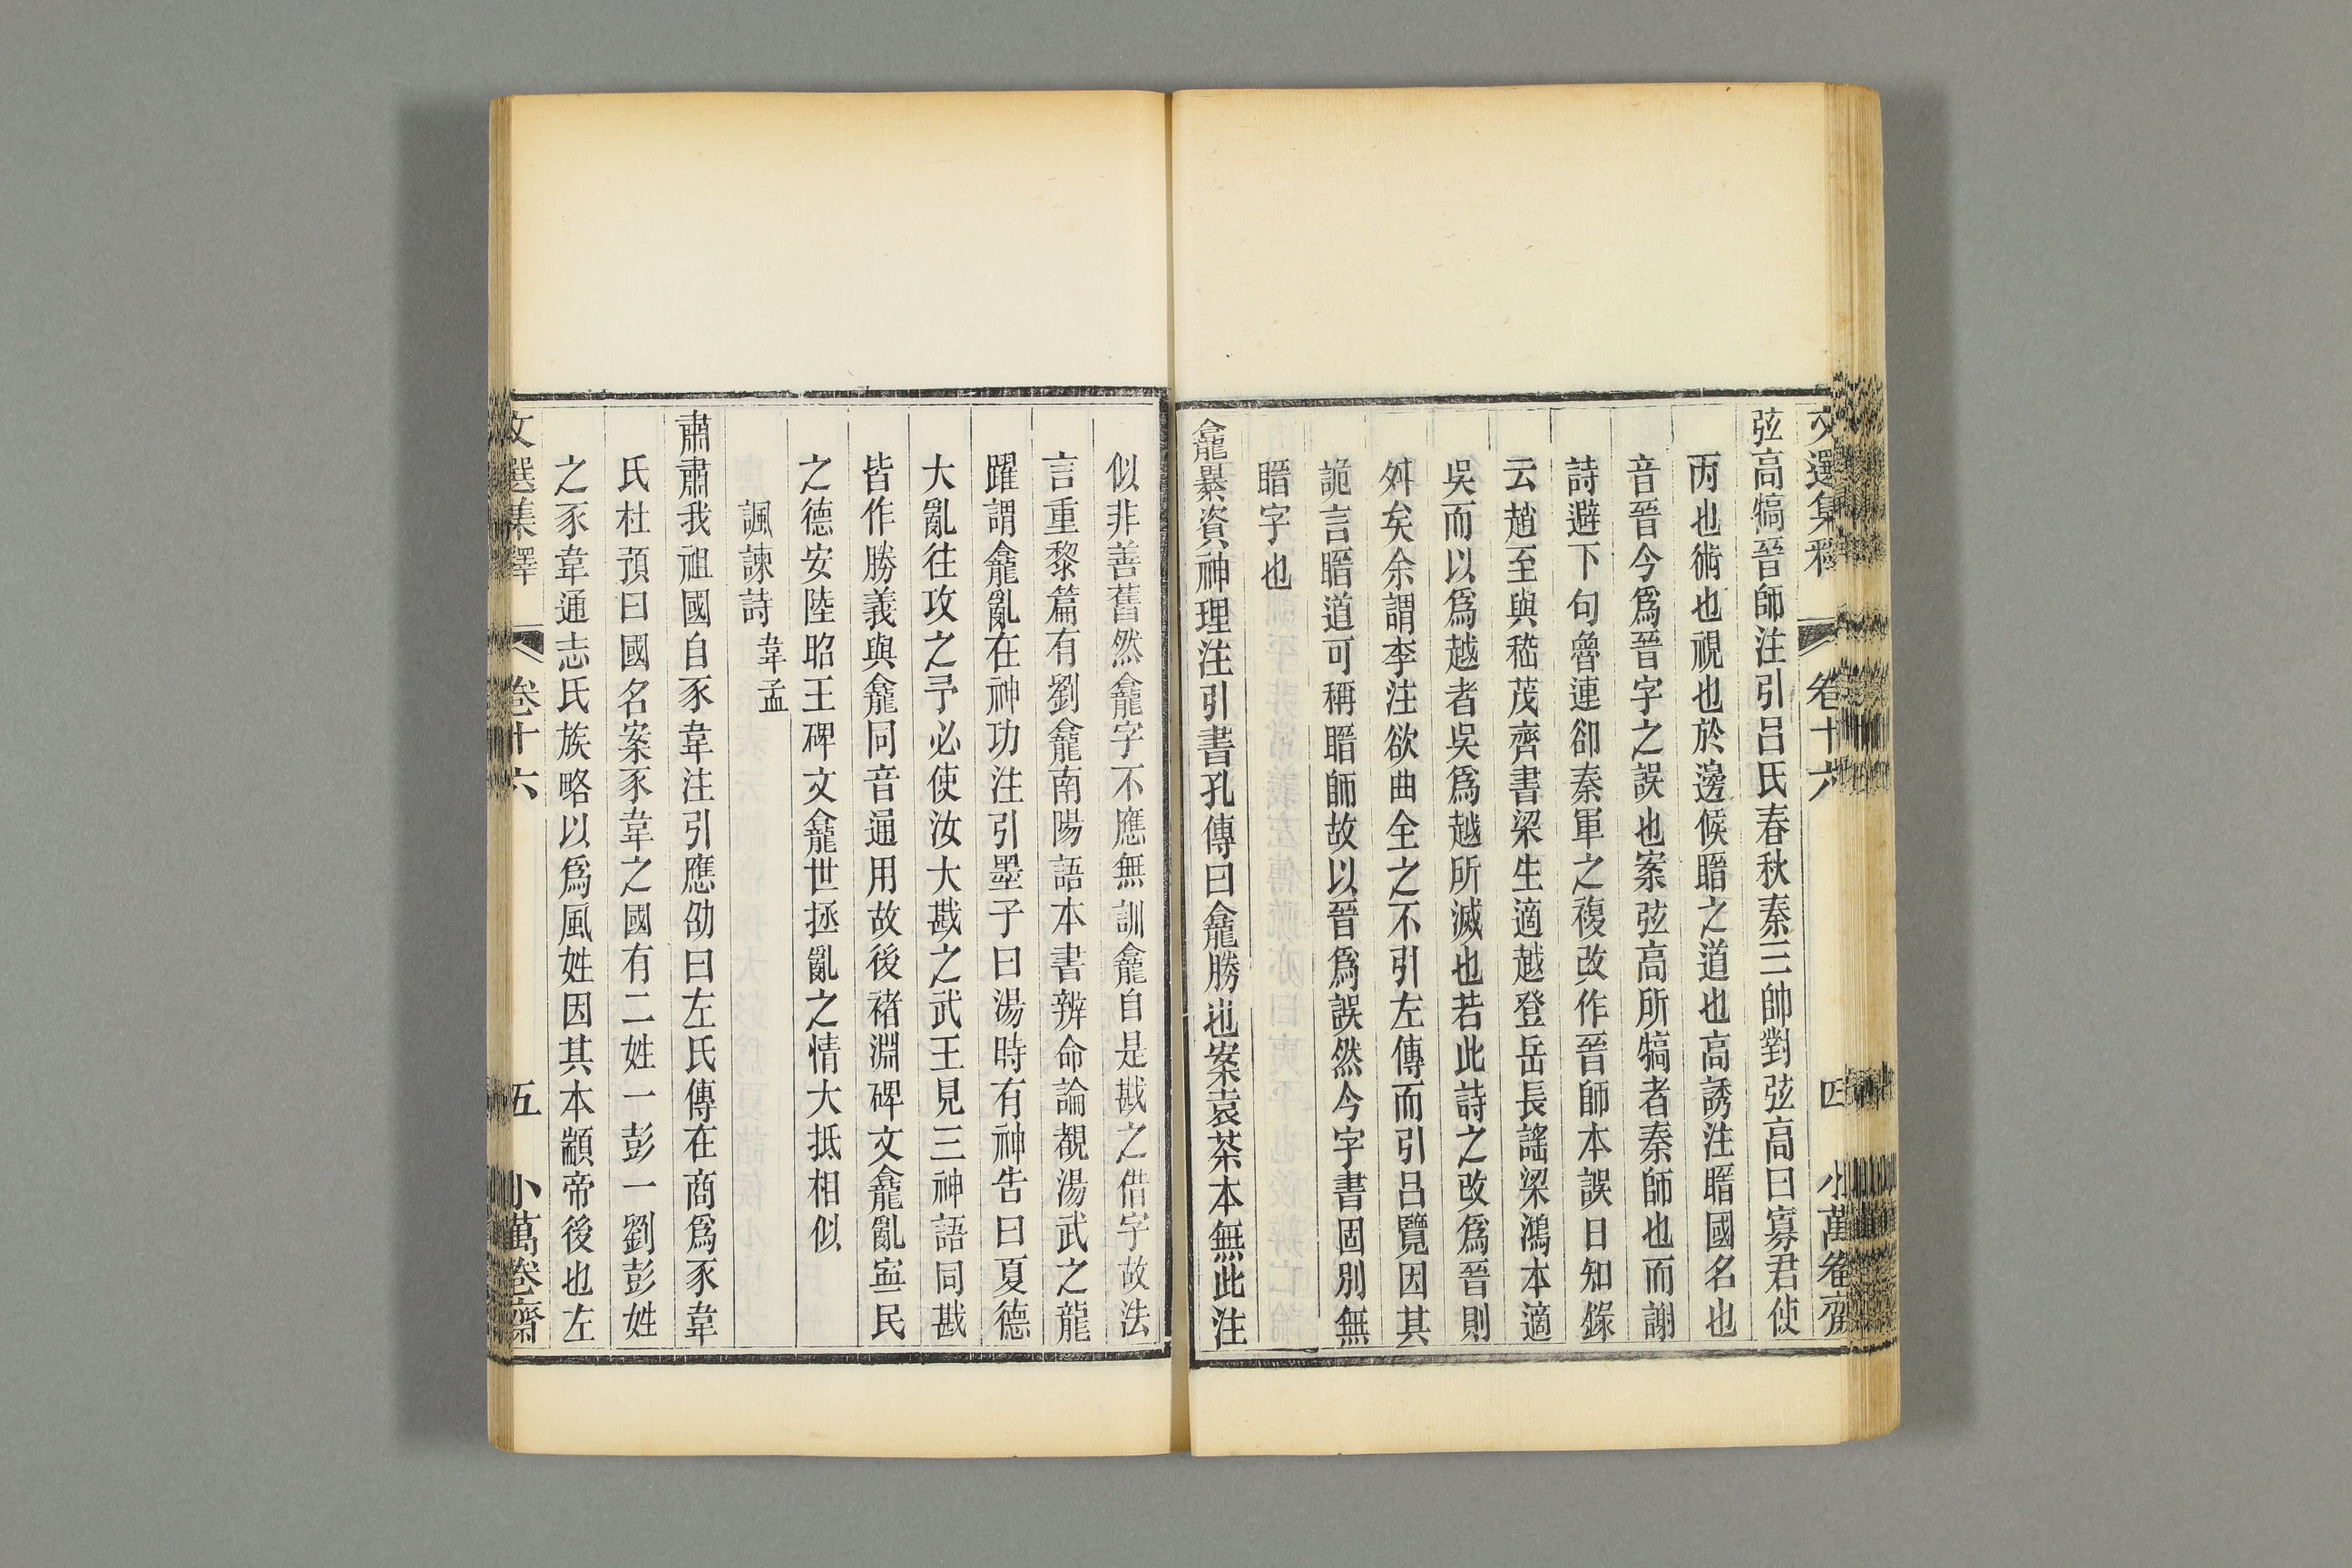 文選集釋 卷十六 四 小萬卷齋
弦高犒晉師注引呂氏春秋秦三帥對弦高曰寡君使
丙也術也視也於邊候𣈆之道也高誘注𣈆國名也
音晉今爲晉字之誤也案弦高所犒者秦師也而謝
詩避下句魯連卻秦軍之複改作晉師本誤日知錄
云趙至與嵇茂齊書梁生適越登岳長謠梁鴻本適
吳而以爲越者吳爲越所滅也若此詩之改爲晉則
舛矣余謂李注欲曲全之不引左傳而引呂覽因其
詭言𣈆道可稱𣈆師故以晉爲誤然今字書固別無
𣈆字也
龕暴資神理注引書孔傳曰龕勝也案袁茶本無此注
似非善舊然龕字不應無訓龕自是戡之借字故法
言重黎篇有劉龕南陽語本書辨命論覩湯武之龍
躍謂龕亂在神功注引墨子曰湯時有神告曰夏德
大亂往攻之予必使汝大戡之武王見三神語同戡
皆作勝義與龕同音通用故後褚淵碑文龕亂寍民
之德安陸昭王碑文龕世拯亂之情大抵相似
諷諫詩 韋孟
肅肅我祖國自豕韋注引應劭曰左氏傳在商爲豕韋
氏杜預曰國名案豕韋之國有二姓一彭一劉彭姓
之豕韋通志氏族略以爲風姓因其本顓帝後也左
文選集釋 卷十六 五 小萬卷齋